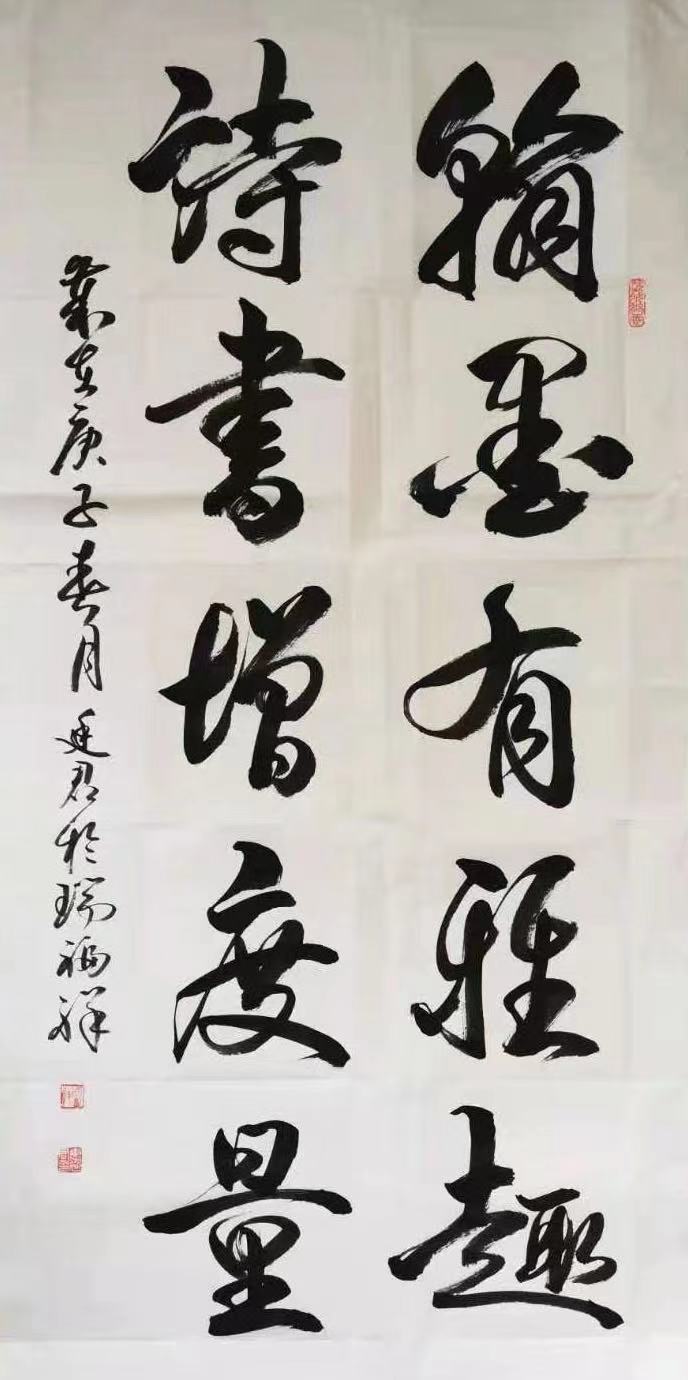 翰墨有雅趣
詩書增度量
歲在庚子春月廷君於瑞福祥